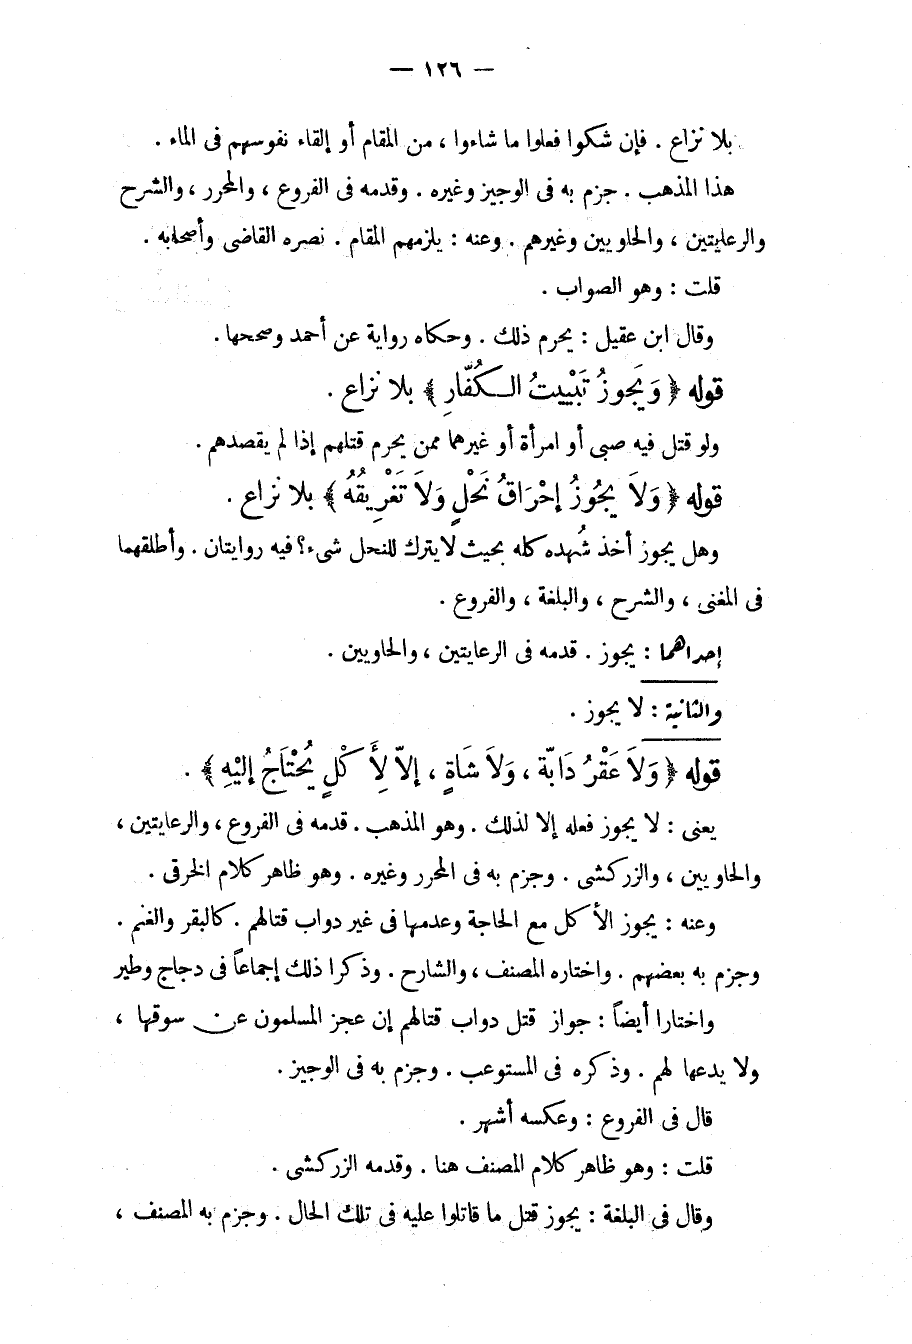 — ١٢٦ —
بلا نزاع . فإن شكوا فعلوا ما شاءوا ، من المقام أو إلقاء نفوسهم فى الماء .
هذا المذهب . جزم به فى الوجيز وغيره . وقدمه فى الفروع ، والمحرر ، والشرح
والرعايتين ، والحاويين وغيرهم . وعنه : يلزمهم المقام . نصره القاضى وأصحابه .
قلت : وهو الصواب .
وقال ابن عقيل : يحرم ذلك . وحكاه رواية عن أحمد وصححها .
قوله ﴿ وَيَجوزُ تَبْيِيتُ الكُفّارِ ﴾ بلا نزاع .
ولو قتل فيه صبى أو امرأة أو غيرهما ممن يحرم قتلهم إذا لم يقصدهم .
قوله ﴿ وَلاَ يَجُوزُ إحْرَاقُ نَحْلٍ وَلاَ تَغْرِيقُهُ ﴾ بلا نزاع .
وهل يجوز أخذ شُهده كله بحيث لا يترك للنحل شىء ؟ فيه روايتان . وأطلقهما
فى المغنى ، والشرح ، والبلغة ، والفروع .
إحداهما : يجوز . قدمه فى الرعايتين ، والحاويين .
والثانية : لا يجوز .
قوله ﴿ وَلاَ عَقْرُ دَابّة ، وَلاَ شَاةٍ ، إلاّ لِأَكْلٍ يُحْتَاجُ إليْهِ ﴾ .
يعنى : لا يجوز فعله إلا لذلك . وهو المذهب . قدمه فى الفروع ، والرعايتين ،
والحاويين ، والزركشى . وجزم به فى المحرر وغيره . وهو ظاهر كلام الخرقى .
وعنه : يجوز الأكل مع الحاجة وعدمها فى غير دواب قتالهم . كالبقر والغنم .
وجزم به بعضهم . واختاره المصنف ، والشارح . وذكرا ذلك إجماعاً فى دجاج وطير
واختارا أيضاً : جواز قتل دواب قتالهم إن عجز المسلمون عن سوقها ،
ولا يدعها لهم . وذكره فى المستوعب . وجزم به فى الوجيز .
قال فى الفروع : وعكسه أشهر .
قلت : وهو ظاهر كلام المصنف هنا . وقدمه الزركشى .
وقال فى البلغة : يجوز قتل ما قاتلوا عليه فى تلك الحال . وجزم به المصنف ،